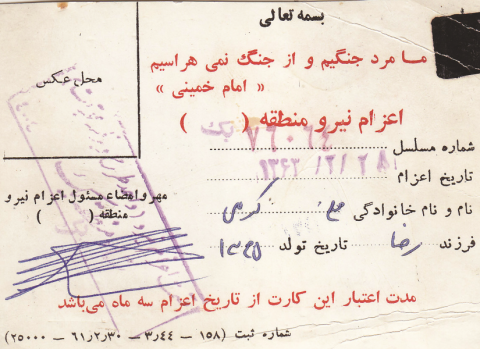 بسمه تعالی
ما مرد جنگیم و از جنگ نمی هراسیم
« امام خمینی »
محل عکس
اعزام نیرو منطقه ( )
شماره مسلسل ۷۶۰۶۴
تاریخ اعزام
نام و نام خانوادگی
فرزند رضا تاریخ تولد
مهر و امضاء مسئول اعزام نیرو
منطقه ( )
مدت اعتبار این کارت از تاریخ اعزام سه ماه می‌باشد
شماره ثبت (۱۵۸ – ۳٫۴۴ – ۶۱٫۲٫۳۰ – ۲۵۰۰۰)